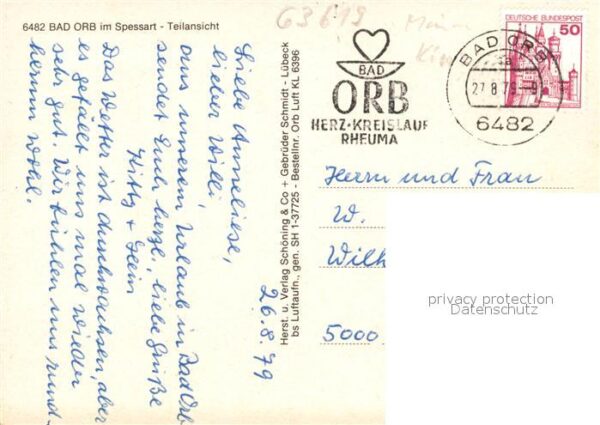 6482 BAD ORB im Spessart - Teilansicht
63619
26.8.79
Liebe Anneliese,
lieber Willi,
aus unserem Urlaub in Bad Orb
sendet Euch herzl. liebe Grüße
Das Wetter ist durchwachsen, aber
es gefällt uns mal wieder
sehr gut. Wir fühlen uns rund-
herum wohl.
Herst. u. Verlag Schöning & Co + Gebrüder Schmidt - Lübeck
bs Luftaufn., gen. SH 1-37725 - Bestellnr. Orb Luft KL 6396
BAD
ORB
HERZ-KREISLAUF
RHEUMA
BAD ORB
27.8.79
6482
DEUTSCHE BUNDESPOST
50
Herrn und Frau
W.
Wilh
5000
privacy protection
Datenschutz